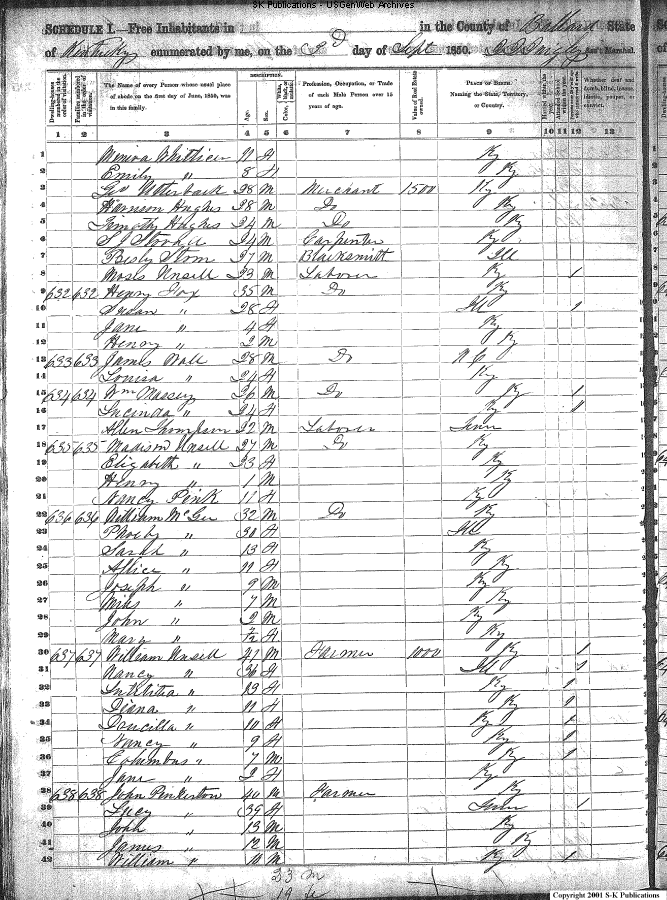 S-K Publications - USGenWeb Archives
SCHEDULE I.—Free Inhabitants in in the County of Ballard State
of Kentucky enumerated by me, on the 2D day of Sept 1850. Ass't Marshal.
Dwelling-houses numbered in the order of visitation.
Families numbered in the order of visitation.
The Name of every Person whose usual place of abode on the first day of June, 1850, was in this family.
DESCRIPTION.
Age.
Sex.
Color
Profession, Occupation, or Trade of each Male Person over 15 years of age.
Value of Real Estate owned.
PLACE OF BIRTH. Naming the State, Territory, or Country.
Married within the year.
Attended School within the year.
Whether deaf and dumb, blind, insane, idiotic, pauper, or convict.
1 2 3 4 5 6 7 8 9 10 11 12 13
1 Whittier 11 F Ky
2 Emily " 8 F Ky
3 Geo Utterback 28 M Merchant 1500 Ky
4 Harrison Hughes 28 M Do Ky
5 Timothy Hughes 24 M Do Ky
6 24 M Carpenter Ky
7 27 M Blacksmith Ill
8 Moses Unsell 23 M Laborer Ky 1
9 632 632 Henry Fox 35 M Do Ky
10 Susan " 28 F Ill 1
11 Jane " 4 F Ky
12 Henry " 2 M Ky
13 633 633 James Wall 28 M Do N C
14 Louisa " 24 F Ky
15 634 634 Wm Massey 26 M Do Ky 1
16 Lucinda " 24 F Ky 1
17 Allen 22 M Laborer Tenn
18 635 635 Madison Unsell 27 M Do Ky
19 Elizabeth " 23 F Ky
20 Henry " 1 M Ky
21 Nancy Pink 11 F Ky
22 636 636 William McGee 32 M Do Ky
23 Phoeby " 30 F Ill
24 Sarah " 13 F Ky
25 Allice " 11 F Ky
26 Joseph " 9 M Ky
27 " 7 M Ky
28 John " 2 M Ky
29 Mary " F Ky
30 637 637 William Unsell 47 M Farmer 1000 Ky 1
31 Nancy " 36 F Ill 1
32 " 13 F Ky 1
33 Diana " 11 F Ky 1
34 Drucilla " 10 F Ky 1
35 Nancy " 9 F Ky 1
36 Columbus " 7 M Ky 1
37 Jane " 2 F Ky
38 638 638 John Pinkerton 40 M Farmer Ky
39 Lucy " 39 F Tenn 1
40 John " 13 M Ky
41 James " 12 M Ky
42 William " 10 M Ky 1
23 M
19 F
Copyright 2001 S-K Publications